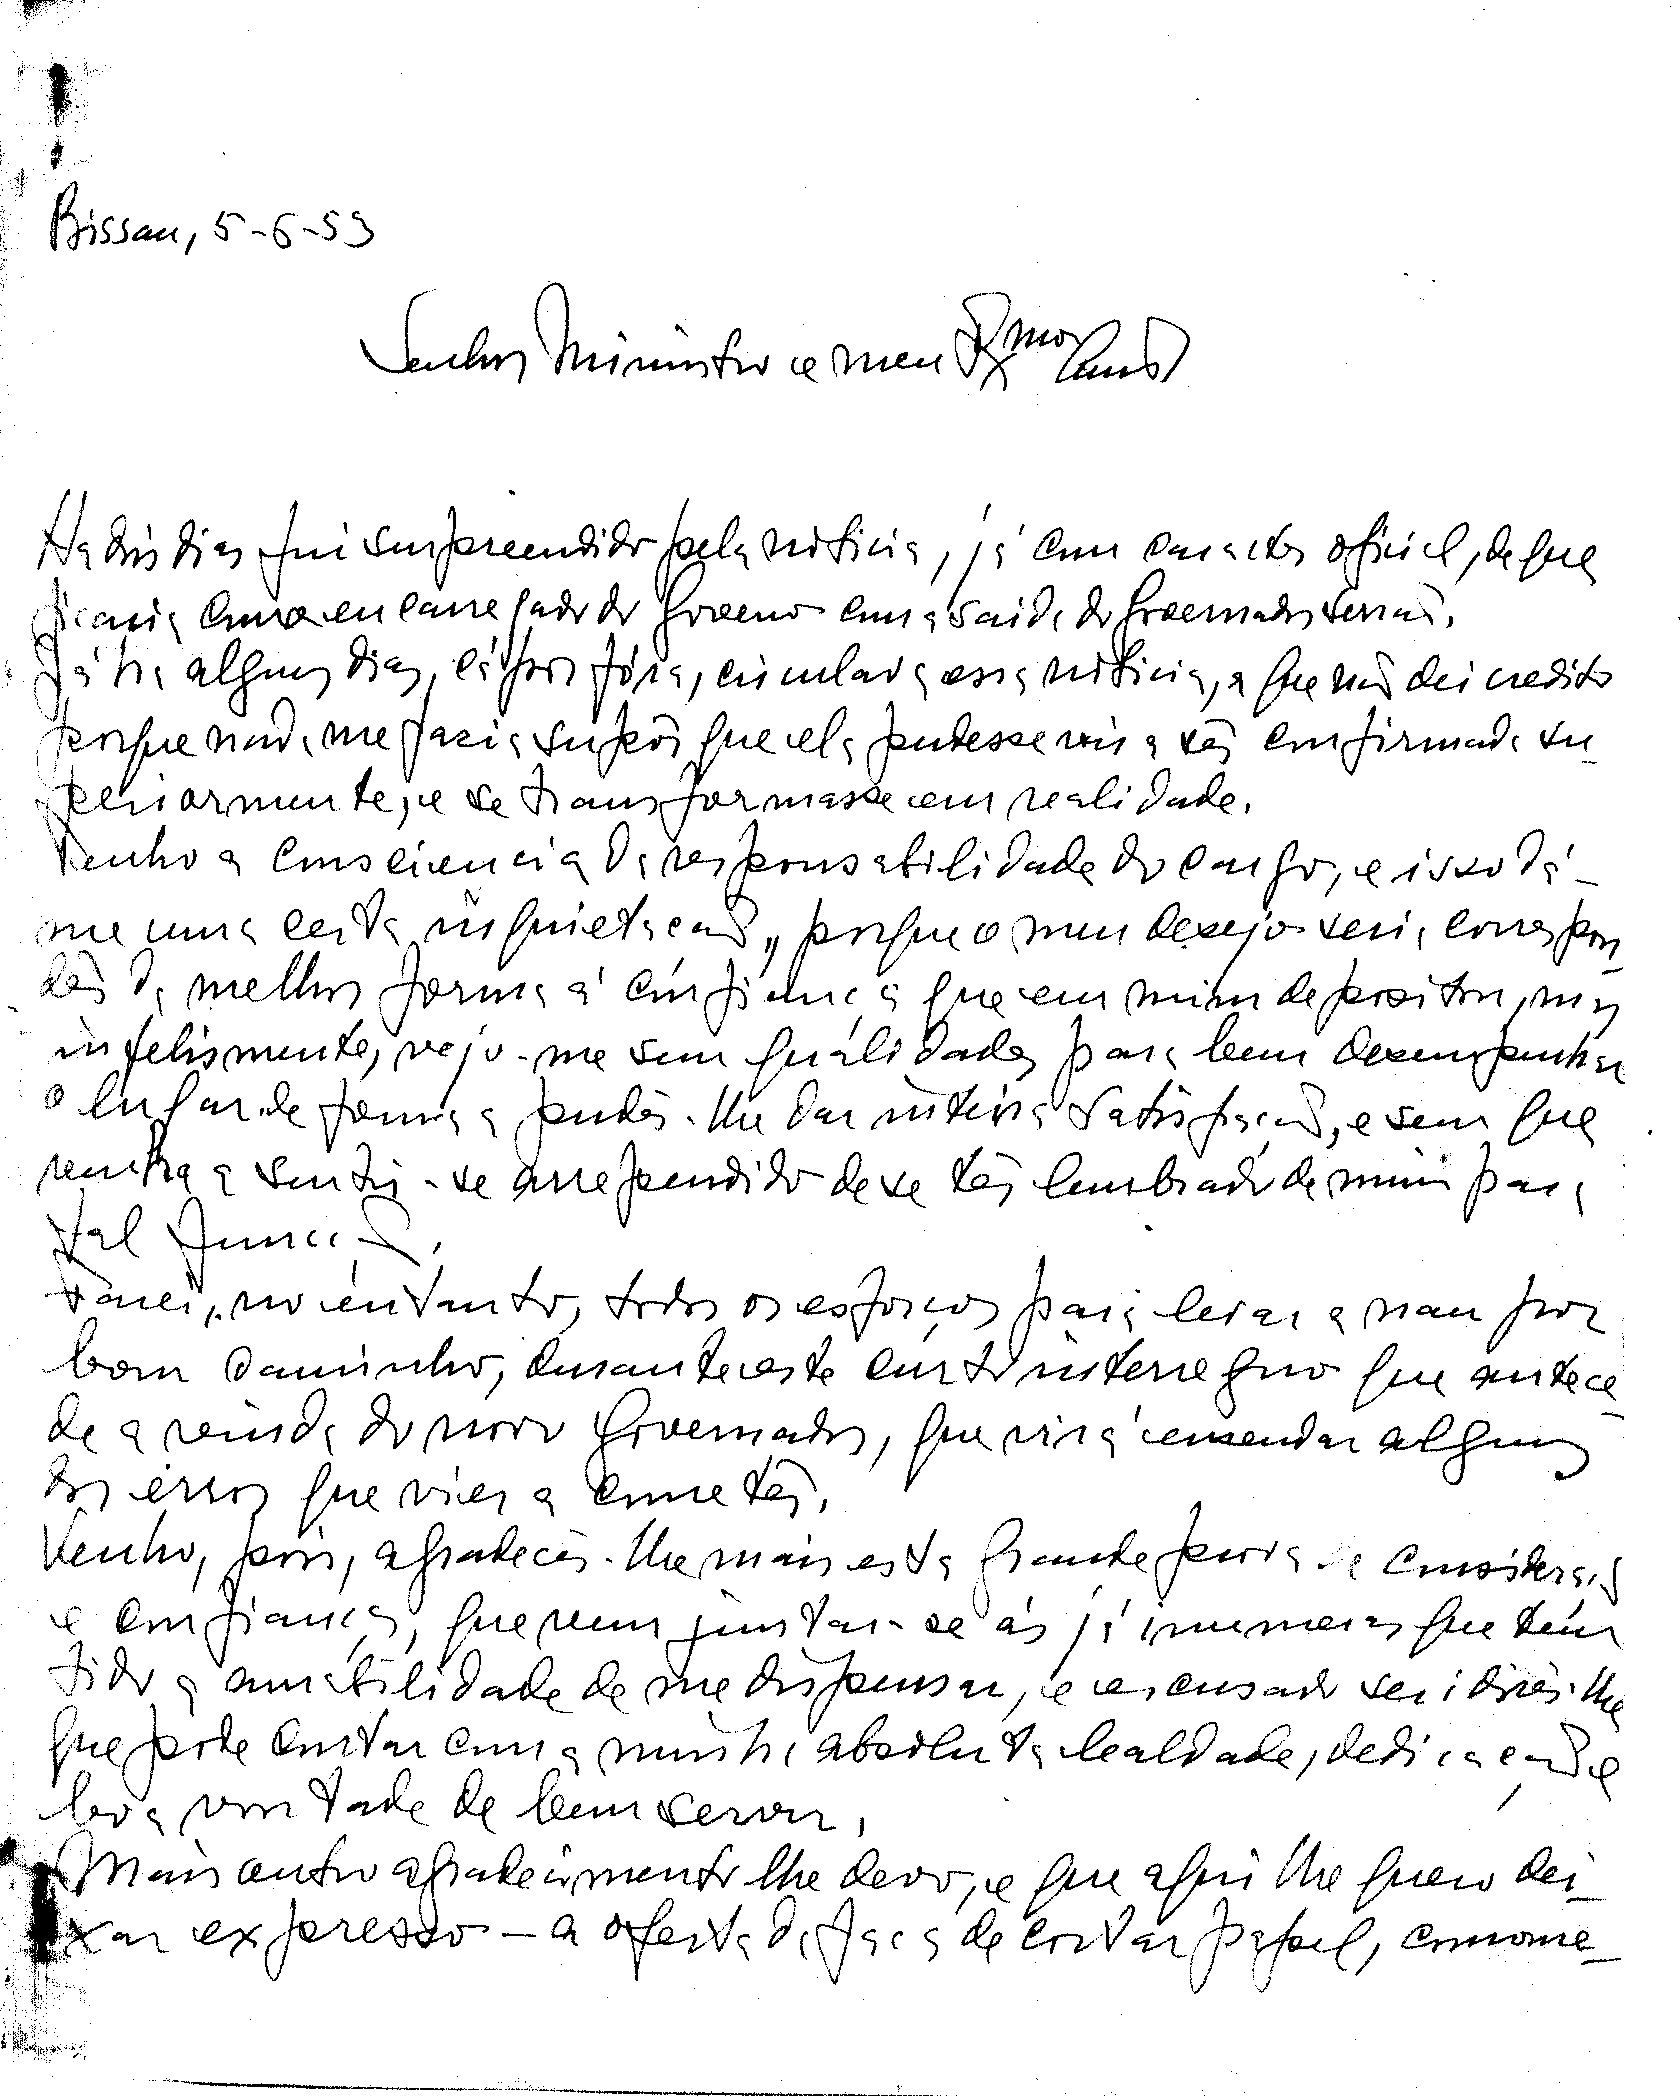 Bissau, 5-6-53
Senhor Ministro e meu Exmo Amº
Ha dois dias fui surpreendido pela noticia, já com caracter oficial, de que
ficaria como encarregado do Governo com a saida do Governador Serrão.
Já ha alguns dias, cá por fóra, circulava essa noticia, a que não dei credito
porque nada me fazia supôr que ela pudesse vir a ser confirmada su-
periormente, e se transformasse em realidade.
Tenho a consciencia da responsabilidade do cargo, e isso dá-
me uma certa inquietação, porque o meu desejo seria correspon-
der da melhor forma á confiança que em mim depositou, mas
infelismente, vejo-me sem qualidades para bem desempenhar
o lugar de forma a puder-lhe dar inteira satisfação, e sem que
venha a sentir-se arrependido de se ter lembrado de mim para
tal função.
Farei, no entanto, todos os esforços para levar a nau por
bom caminho, durante este curto interregno que antece-
de a vinda do novo Governador, que virá emendar alguns
dos erros que vier a cometer.
Venho, pois, agradecer-lhe mais esta grande prova de consideração
e confiança, que vem juntar-se ás já inumeras que tem
tido a amabilidade de me dispensar, e escusado será dizer-lhe
que pode contar com a minha absoluta lealdade, dedicação e
boa vontade de bem servir.
Mais outro agradecimento lhe devo, e que aqui lhe quero dei-
xar expresso - a oferta da faca de cortar papel, comome-